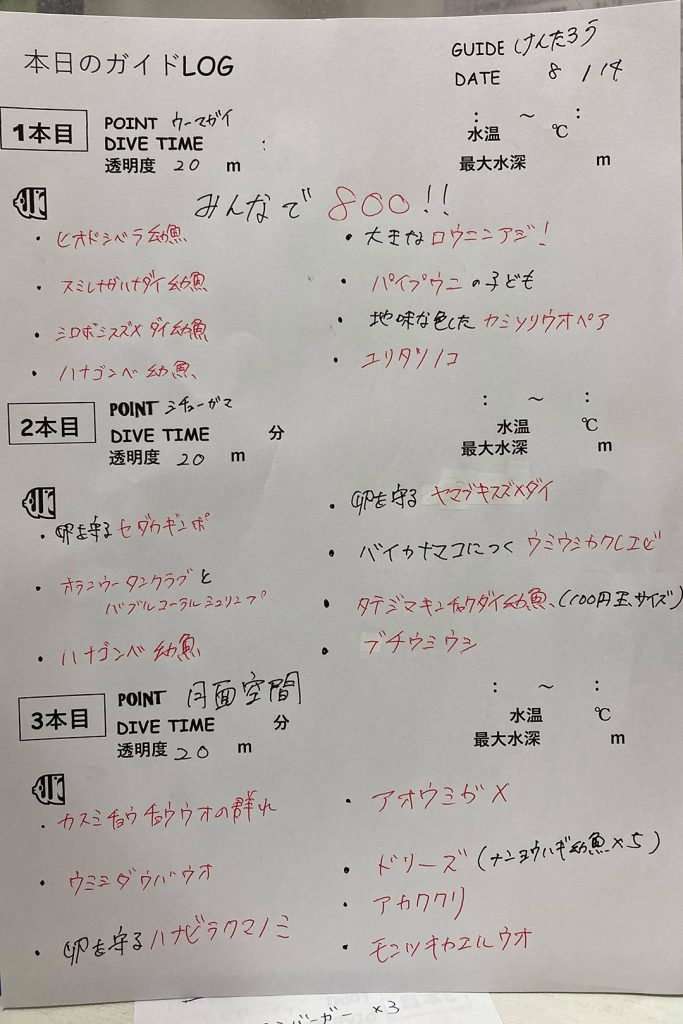 本日のガイドLOG
GUIDE けんたろう
DATE 8 / 14
1本目
POINT ウーマガイ
DIVE TIME :
透明度 20 m
: ~ :
水温 ℃
最大水深 m
みんなで 800!!
・ヒオドシベラ幼魚
・スミレナガハナダイ幼魚
・シロボシスズメダイ幼魚
・ハナゴンベ幼魚
・大きなロウニンアジ!
・パイプウニの子ども
・地味な色したカミソリウオペア
・ユリタツノコ
2本目
POINT シチューガマ
DIVE TIME 分
透明度 20 m
: ~ :
水温 ℃
最大水深 m
・卵を守るセダカギンポ
・オランウータンクラブと
バブルコーラルシュリンプ
・ハナゴンベ幼魚
・卵を守るヤマブキスズメダイ
・バイカナマコにつくウミウシカクレエビ
・タテジマキンチャクダイ幼魚、(100円玉サイズ)
・ブチウミウシ
3本目
POINT 月面空間
DIVE TIME 分
透明度 20 m
: ~ :
水温 ℃
最大水深 m
・カスミチョウチョウウオの群れ
・ウミショウバウオ
・卵を守るハナビラクマノミ
・アオウミガメ
・ドリーズ(ナンヨウハギ幼魚×5)
・アカククリ
・モンツキカエルウオ
バーガー ×3